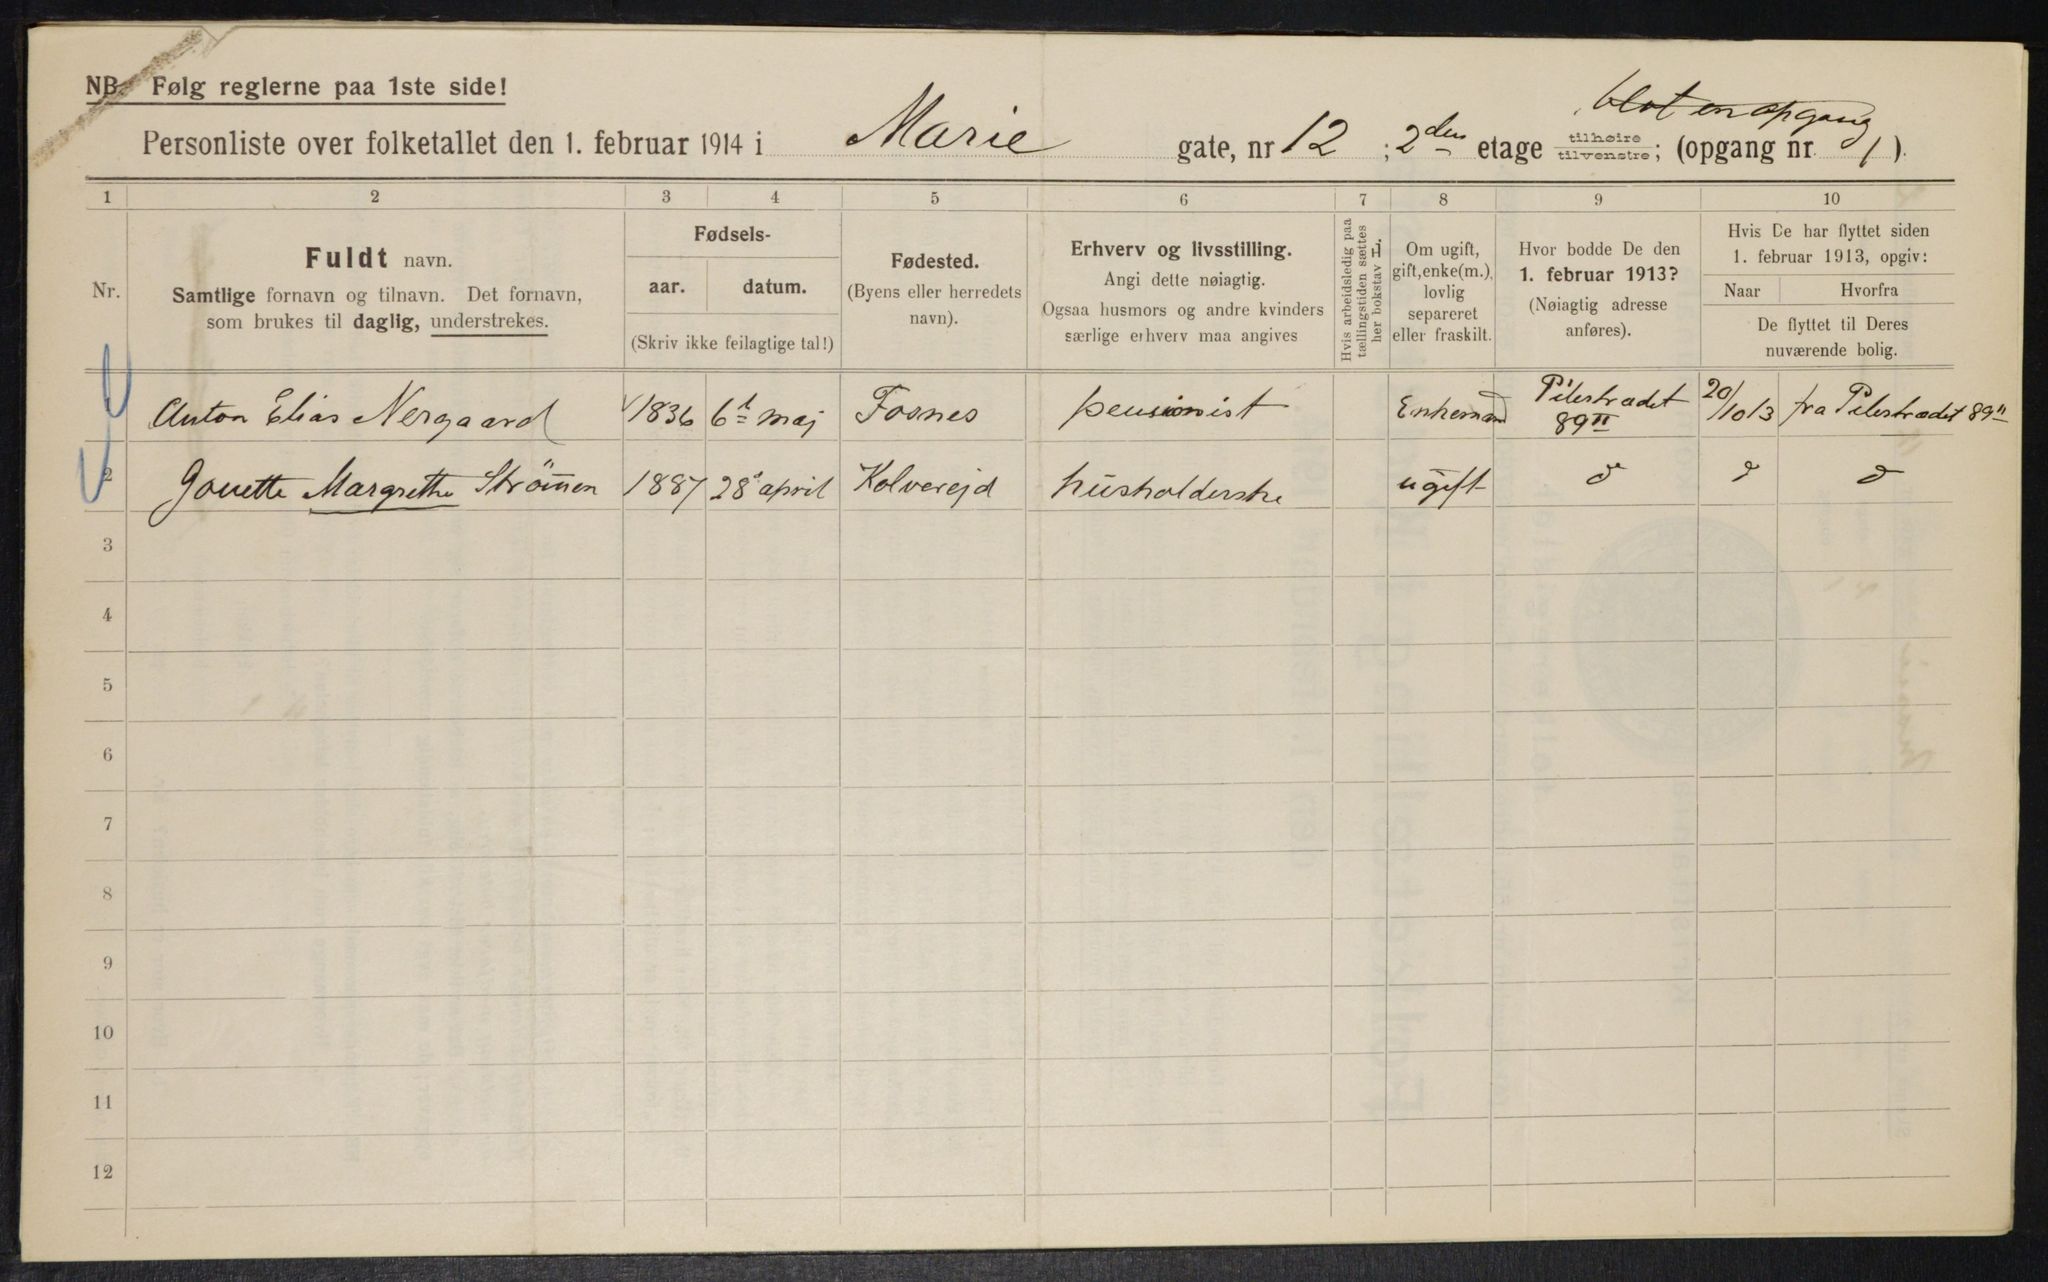 NB. Følg reglerne paa 1ste side!
blot en opgang
Personliste over folketallet den 1. februar 1914 i Marie gate, nr 12 ; 2den etage tilhøire tilvenstre; (opgang nr. 1).
1 2 3 4 5 6 7 8 9 10
Nr.
Fuldt navn.
Samtlige fornavn og tilnavn. Det fornavn,
som brukes til daglig, understrekes.
Fødsels-
aar. datum.
(Skriv ikke feilagtige tal!)
Fødested.
(Byens eller herredets
navn).
Erhverv og livsstilling.
Angi dette nøiagtig.
Ogsaa husmors og andre kvinders
særlige erhverv maa angives
Hvis arbeidsledig paa
tællingstiden sættes
her bokstav L.
Om ugift,
gift, enke(m.),
lovlig
separeret
eller fraskilt.
Hvor bodde De den
1. februar 1913?
(Nøiagtig adresse
anføres).
Hvis De har flyttet siden
1. februar 1913, opgiv:
Naar Hvorfra
De flyttet til Deres
nuværende bolig.
Anton Elias Nergaard 1836 6te maj Fosnes pensionist Enkemand Pilestrædet 89II 20/10 13 fra Pilestrædet 89II
2 Jonette Margrethe Strömen 1887 28d april Kolverejd husholderske ugift d d d
3
4
5
6
7
8
9
10
11
12